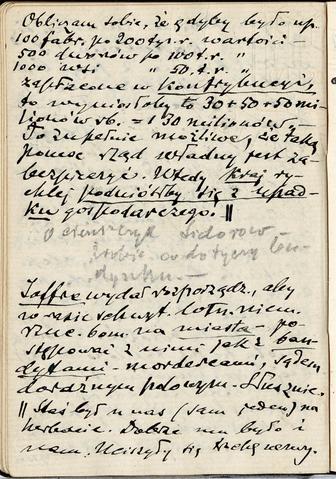 Obliczam sobie, że gdyby było np.
100 fabr. po 200 tys. r. wartości –
500 dworów po 100 t. r. "
1000 wsi " 50. t. r. "
zapłacone w kontrybucyi,
to wyniosłoby to 30+50+50 mi-
lionów rb. = 130 milionów.
To zupełnie możliwe, że taką
pomoc rząd władny jest za-
bezpieczyć. Wtedy kraj ry-
chlej podniósłby się z upad-
ku gospodarczego. ||
co dotyczy Lon-
dynku. –
Joffre wydał rozporządz., aby
w razie schwyt. lotn. niem.
rzuc. bom. na miasta – po-
stępować z nimi jak z ban-
dytami – mordercami, sądem
doraźnym polowym. Słusznie.
|| Staś był u nas (sam jeden) na
herbacie. Dobrze mu było i
nam. Uciszyły się trochę nerwy.